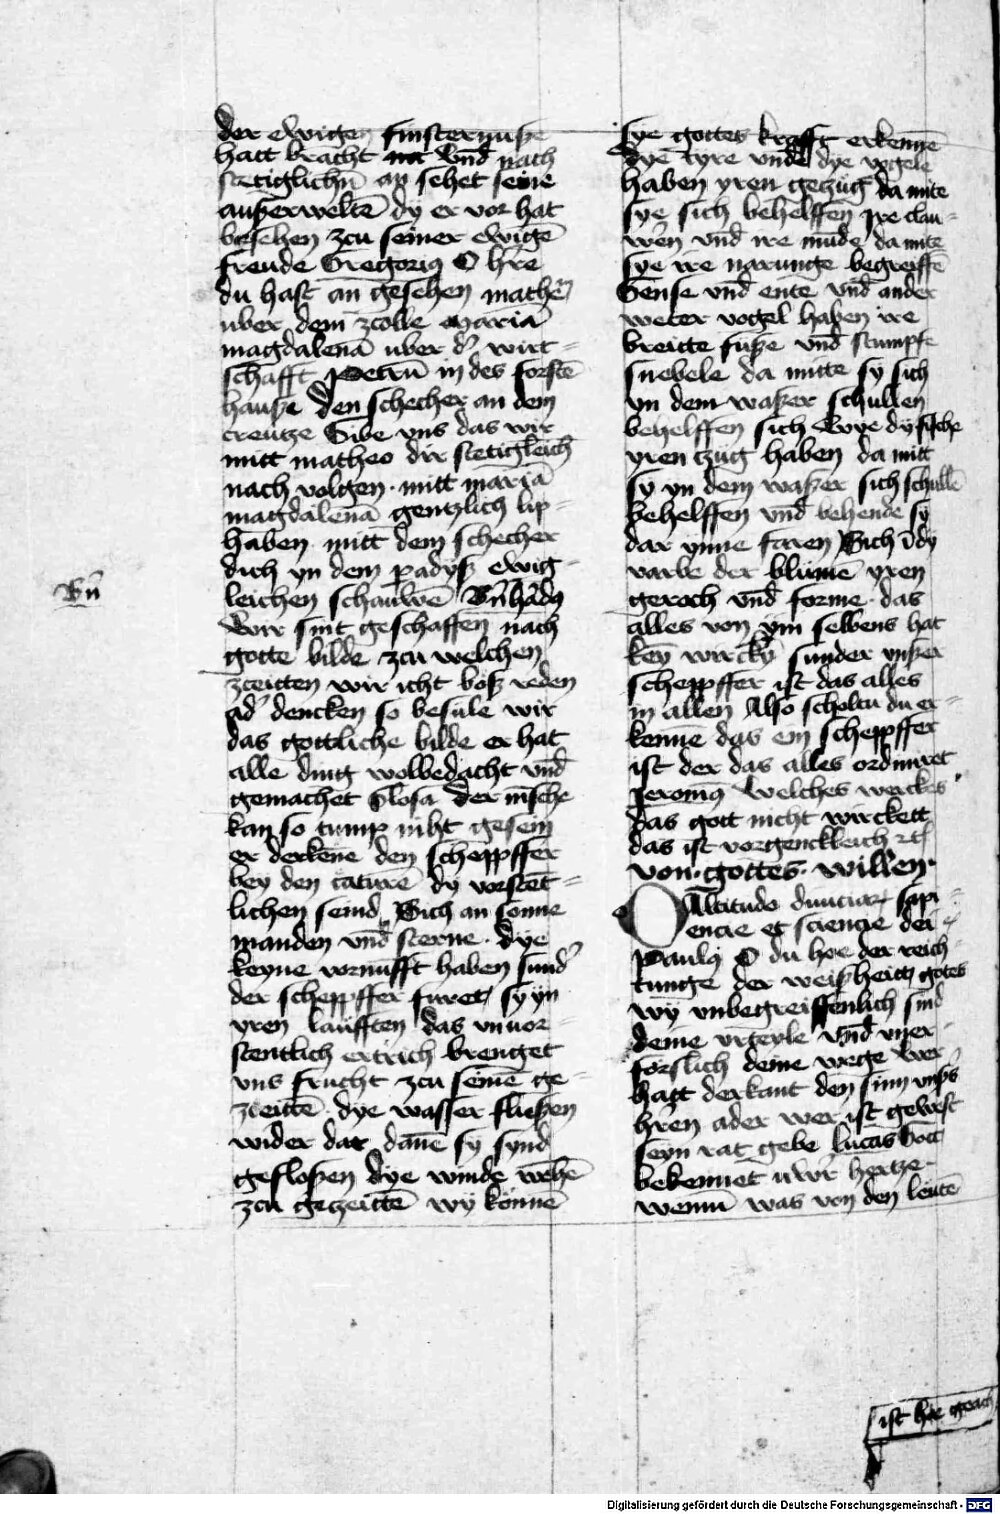 der ewigen finsternusze
hatt bracht vnd nach
stetiglichn̄ an sehet seine
auszerweltē dy er vor hat
versehen zcu seiner ewigē
freude Gregoriꝰ O h're
du hast an gesehen mathe'
uber dem zcolle maria
magdalenā uber d' wirt=
schafft Petrū in des forstē
hausze den schecher an dem
creutze Gibe vns das wir
mitt matheo dir stetigleich
nach volgen · mitt mariā
magdalenā gentzlich lip=
haben mitt dem schecher
dich yn dem padysz ewig=
leichen schauwē Bn̄hadꝰ
Bn̄
Wir sint geschaffen nach
gotte bilde zcu welchen
zceitten wir icht bosz reden
ad' dencken so besule wir
das gottliche bilde er hat
alle ding wolbedacht vnd
gemachet Glosa Der mēsche
kan so tump niht gesein
er derkēne den scheppffer
bey den cature dy vorstet=
lichen seind Sich an sonne
manden vnd sterne · dye
keyne vornufft haben sund'
der scheppffer furet sy yn
yren laufften das vnuor=
stentlich ertrich brenget
vns frucht zcu seinē ge=
zceittē · dye wasser flieszen
wider dar dānē sy synd
geflossen dye winde wehē
zcu gezceittē wy konnē
sye gottes krafft erkennē
dye tyre vnde dye vogele
haben yren geczug da mite
sye sich behelffen Ire clau=
wen vnd ire mūde da mite
sye ire narunge begreiffē
Gense vnd ente vnd ander
weter vogel haben ire
breitte fusze vnd stumpfe
snebele da mitte sy sich
yn dem waszer schullen
behelffen sich Wye dy fische
yren czug haben da mitt
sy yn dem waszer sich schullē
behelffen vnd behende sy
dar ynne faren Sich dy
varbe der blumē yren
geroch vnd forme · das
alles von ym selbens hat
key wircky sunder vnszer
scheppffer ist das alles
in allen Also scholtu du er=
kennē das ein scheppffer
ist der das alles ordiniret
Jeronīꝰ Welches werckes
das gott nicht wirckett
das ist vorgenckleich ꝛc
von · gottes · willen ·
O Altitudo diuiciar sapi=
encie et sciencie dei
Paulꝰ O du hoe der reich=
tunge der weiszheit gotes
wy vnbegreiffenlich sind
deine vrteyle vnd vner=
forslich deine wege Wer
hatt derkant den sinn vnszs
hren ader wer ist gewest
seyn rat gebe Lucas Gott
bekennet uwr hertze ·
wennū was von den leutē
ist hoe